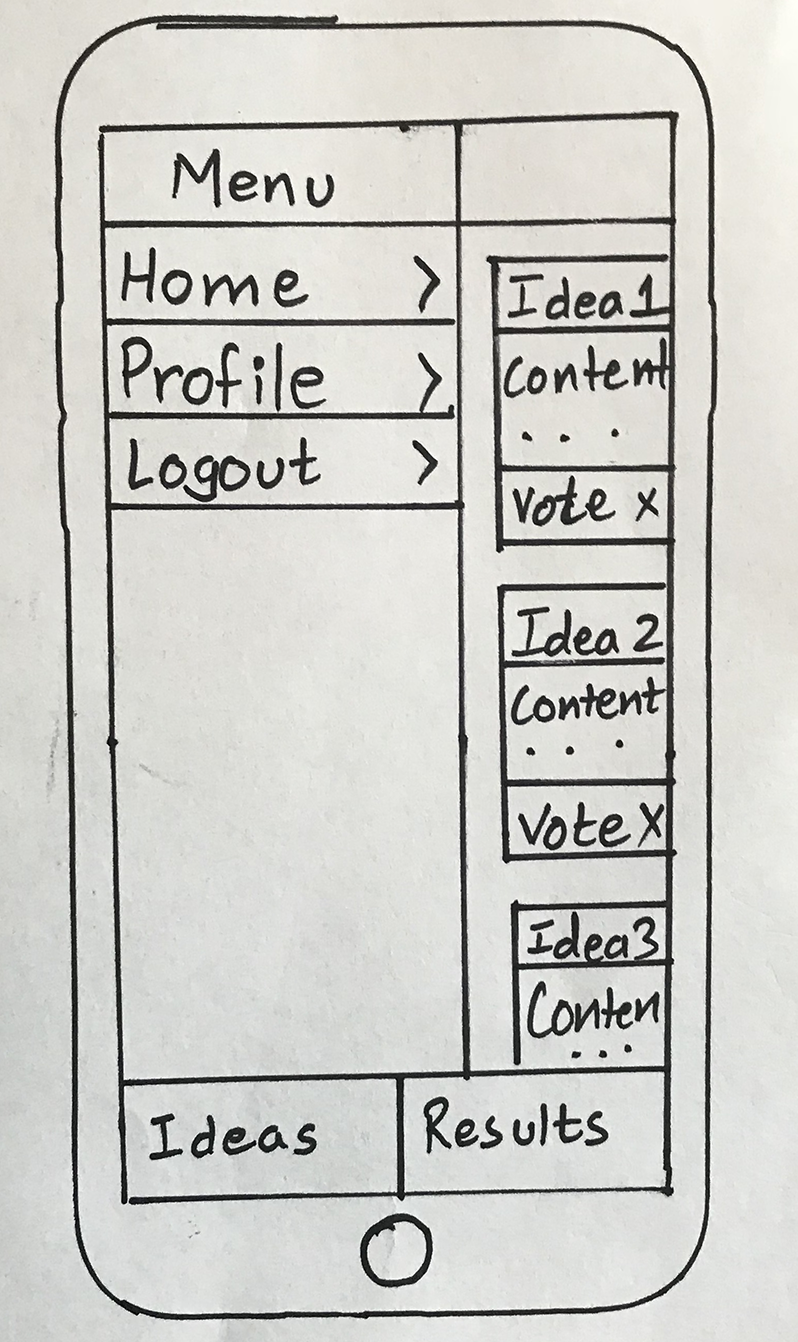 Menu
Home >
Profile >
Logout >
Idea 1
Content
. . .
Vote x
Idea 2
Content
. . .
Vote X
Idea 3
Conten
...
Ideas
Results